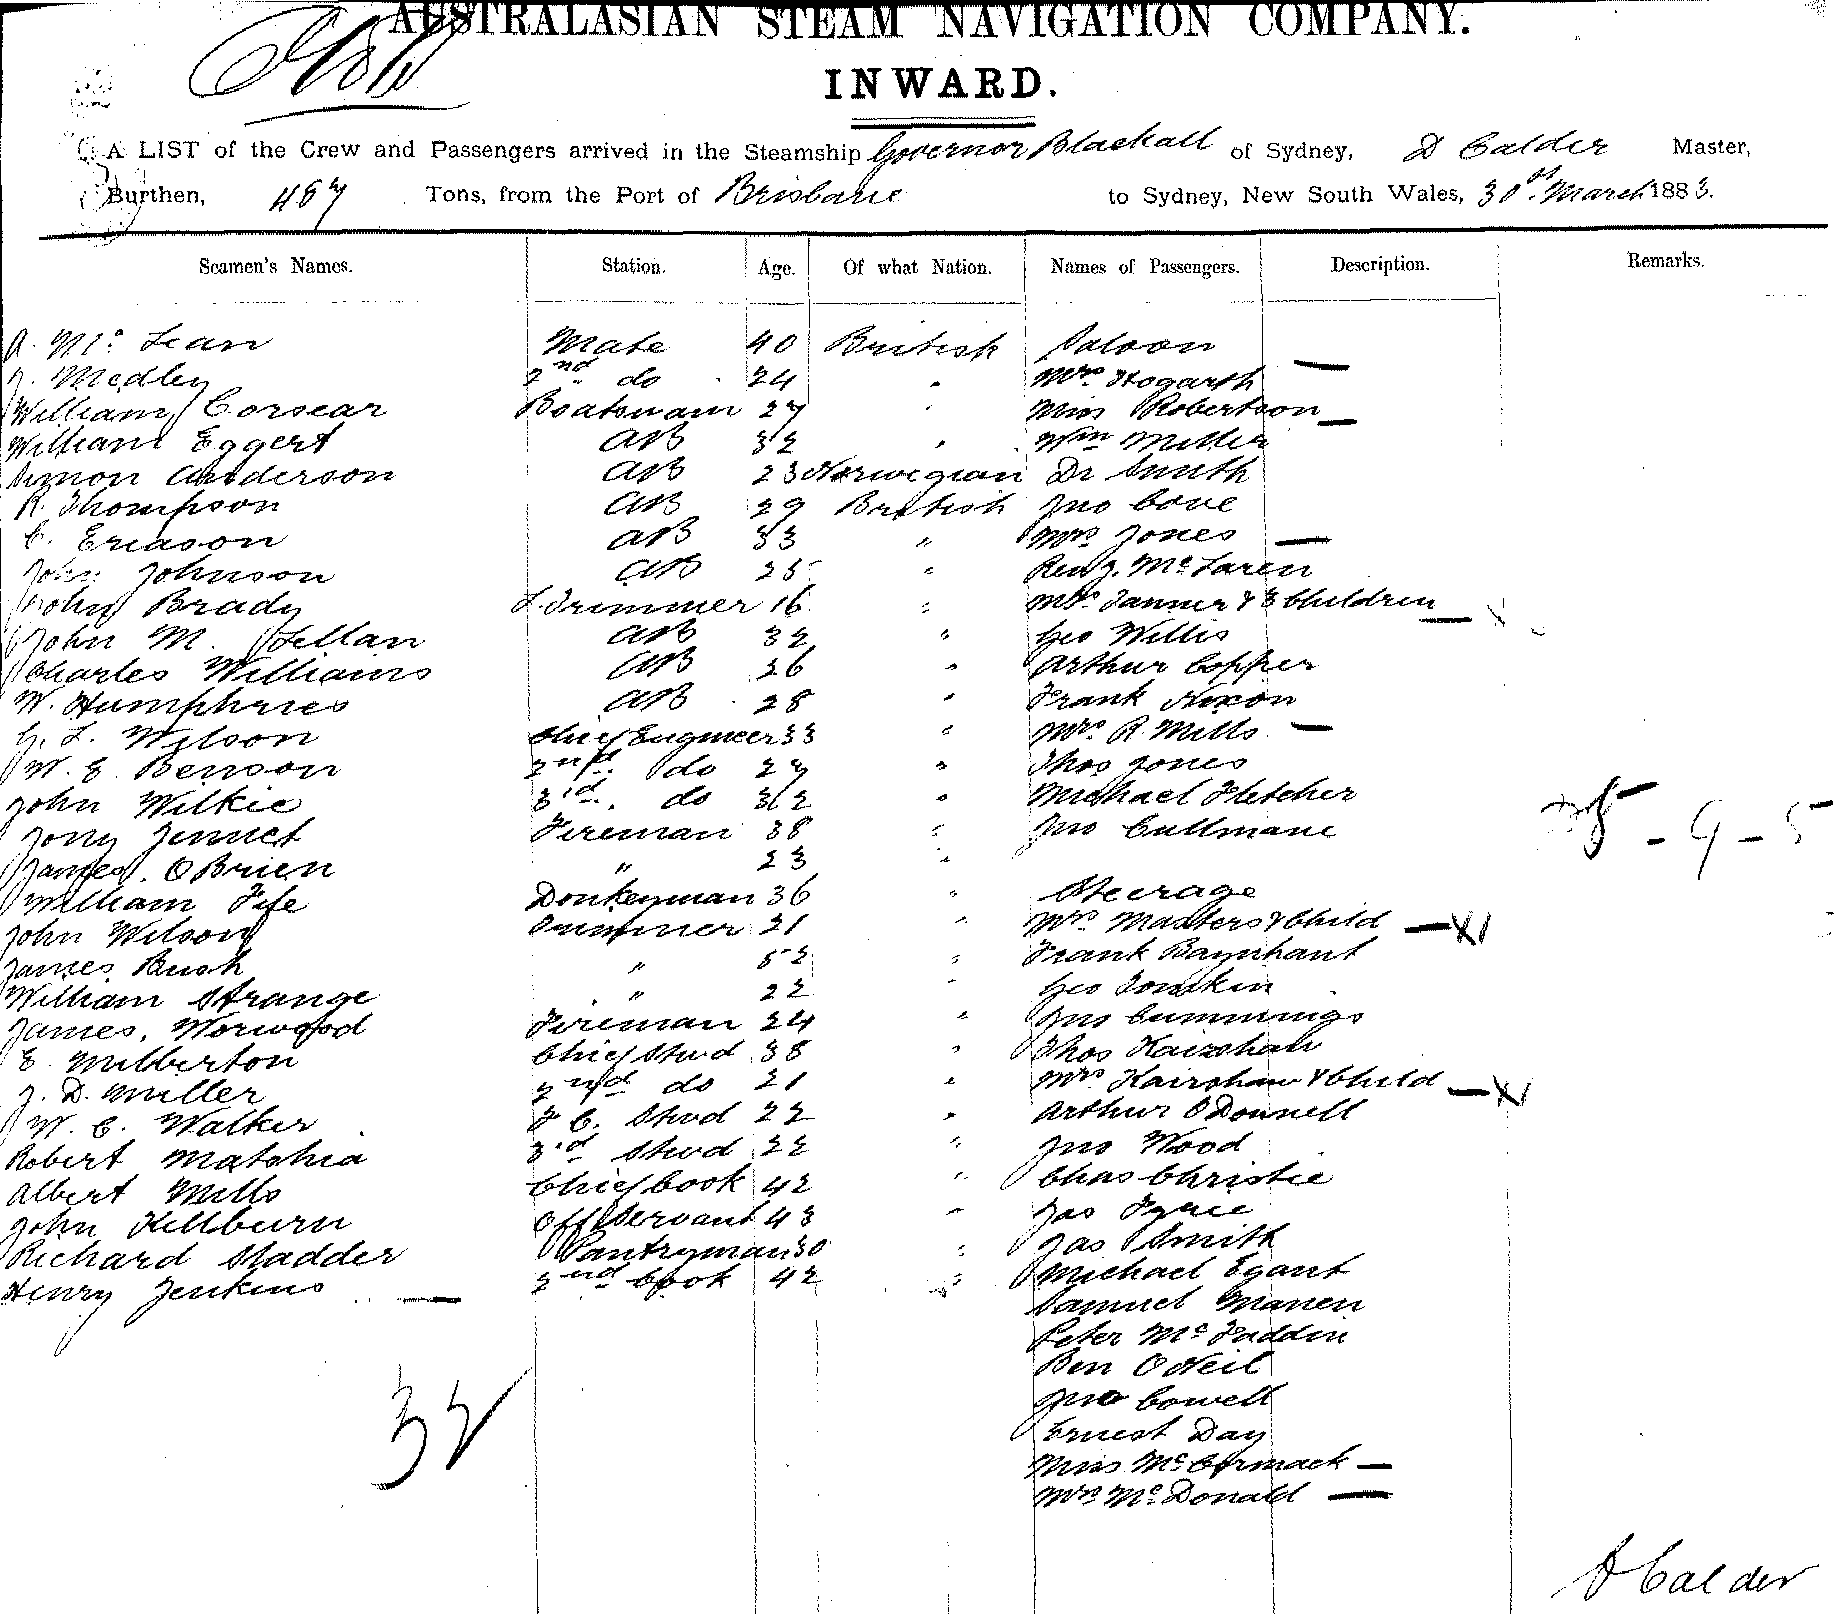 AUSTRALASIAN STEAM NAVIGATION COMPANY.
INWARD.
A LIST of the Crew and Passengers arrived in the Steamship Governor Blackall of Sydney, D Calder Master,
Burthen, 487 Tons, from the Port of Brisbane to Sydney, New South Wales, 30th March 1883.
Seamen's Names. Station. Age. Of what Nation. Names of Passengers. Description. Remarks.
A. Mc Lean Mate 40 British Saloon
J. Medley 2nd do 24 " Mrs Hogarth —
William Corsear Boatswain 27 " Miss Robertson —
William Eggert AB 32 " Wm Miller
Simon Anderson AB 23 Norwegian Dr Smith
R. Thompson AB 29 British Jno Cove
C. Ericson AB 33 " Mrs Jones —
John Johnson AB 25 " Revd J. McLaren
John Brady L. Trimmer 16 " Mrs Tanner & 3 Children —
John M. Lellan AB 32 " Geo Willis
Charles Williams AB 26 " Arthur Copper
W. Humphries AB 28 " Frank Nixon
G. L. Wilson Chief Engineer 33 " Mrs R. Mills —
W. E. Benson 2nd do 27 " Thos Jones
John Wilkie 3rd do 32 " Michael Fletcher
Tony Jennet Fireman 38 " Jno Cullinane
James O Brien " 23 "
William Fife Donkeyman 36 " Steerage
John Wilson Trimmer 21 " Mrs Masters & Child —
James Bush " 52 " Frank Baynhant
William Strange " 22 " Geo Tomkin
James Norwood Fireman 24 " Jno Cummings
E. Milberton Chief Stwd 38 " Thos Kairshaw
J. D. Miller 2nd do 21 " Mrs Kairshaw & Child —
W. C. Walker F C. Stwd 22 " Arthur O Donnell
Robert Matshia 3rd Stwd 22 " Jno Wood
Albert Mills Chief Cook 42 " Chas Christie
John Killburn Off Servant 43 " Jas
Richard Sladder Pantryman 30 " Jas Smith
Henry Jenkins — 2nd Cook 42 " Michael Egant
Samuel Manen
Peter McFaddin
Ben O Neil
Jno Cowell
Ernest Day
Miss McCormack —
Mrs McDonald —
32
5 - 9 - 5
D Calder